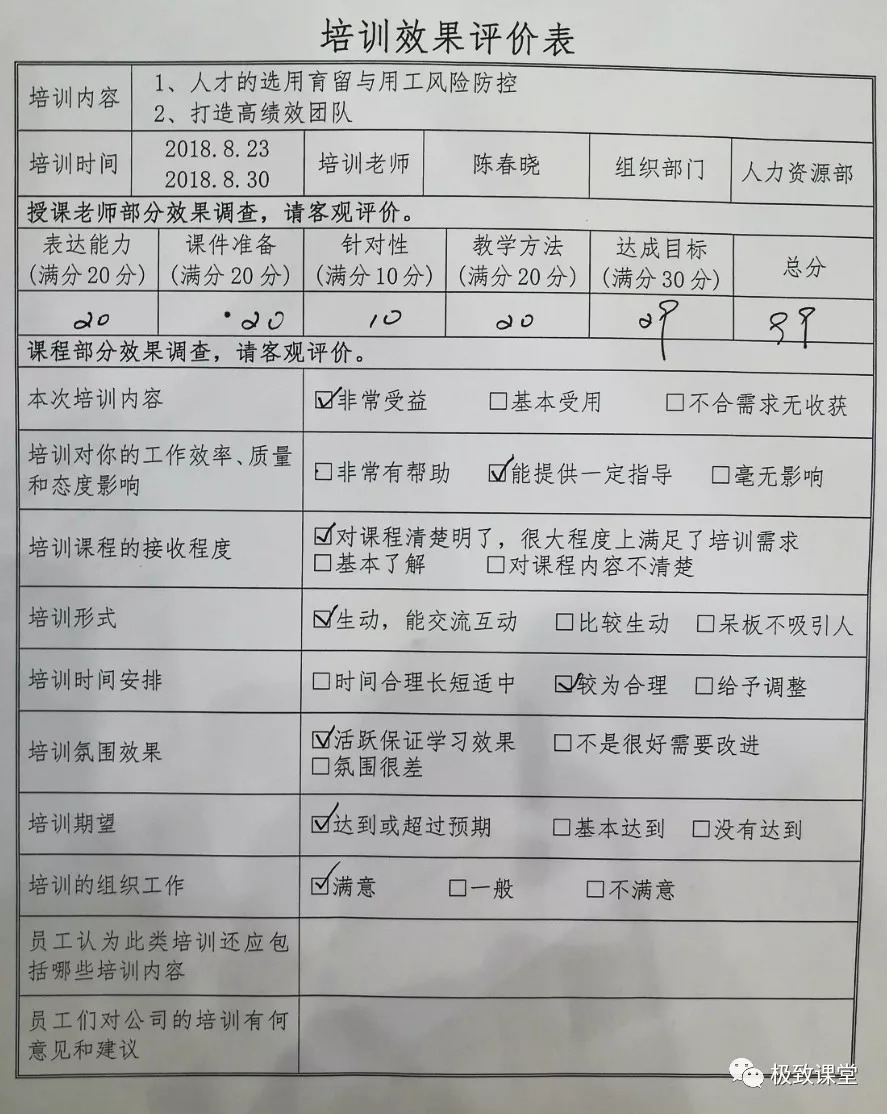 培训效果评价表
培训内容
1、人才的选用育留与用工风险防控
2、打造高绩效团队
培训时间
2018.8.23
2018.8.30
培训老师
陈春晓
组织部门
人力资源部
授课老师部分效果调查，请客观评价。
表达能力
(满分20分)
课件准备
(满分20分)
针对性
(满分10分)
教学方法
(满分20分)
达成目标
(满分30分)
总分
20 20 10 20 29 99
课程部分效果调查，请客观评价。
本次培训内容
☑非常受益 □基本受用 □不合需求无收获
培训对你的工作效率、质量
和态度影响
□非常有帮助 ☑能提供一定指导 □毫无影响
培训课程的接收程度
☑对课程清楚明了，很大程度上满足了培训需求
□基本了解 □对课程内容不清楚
培训形式
☑生动，能交流互动 □比较生动 □呆板不吸引人
培训时间安排
□时间合理长短适中 ☑较为合理 □给予调整
培训氛围效果
☑活跃保证学习效果 □不是很好需要改进
□氛围很差
培训期望
☑达到或超过预期 □基本达到 □没有达到
培训的组织工作
☑满意 □一般 □不满意
员工认为此类培训还应包
括哪些培训内容
员工们对公司的培训有何
意见和建议
极致课堂